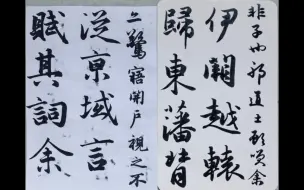 非子也邪道士顧笑余
亦驚寤開戶視之不
賦其詞余
從京域言
歸東藩背
伊闕越轘